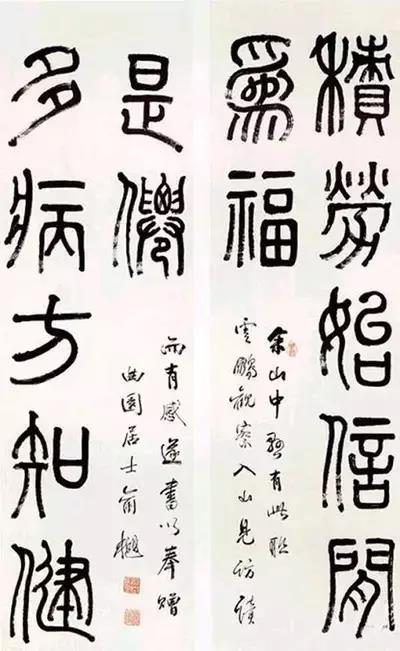 積勞始信閒
爲福
余山中有此聯
雲鵬觀察入山見訪讀
多病方知健
是僊
而有感遂書以奉贈
曲園居士俞樾